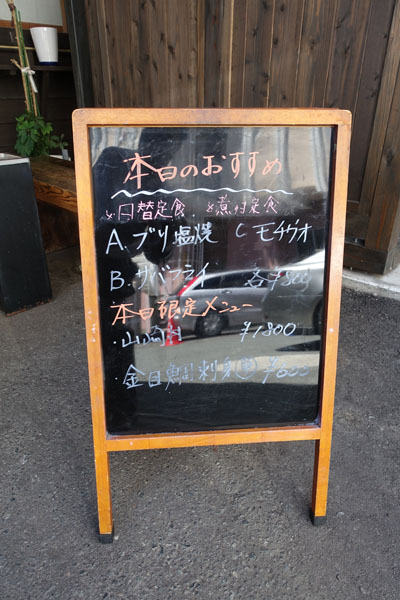 本日のおすすめ
日替定食 煮付定食
A.ブリ塩焼 C モチウオ
B.サバフライ 各¥
本日限定メニュー
・山崎 ¥1800
金目鯛刺身 ¥